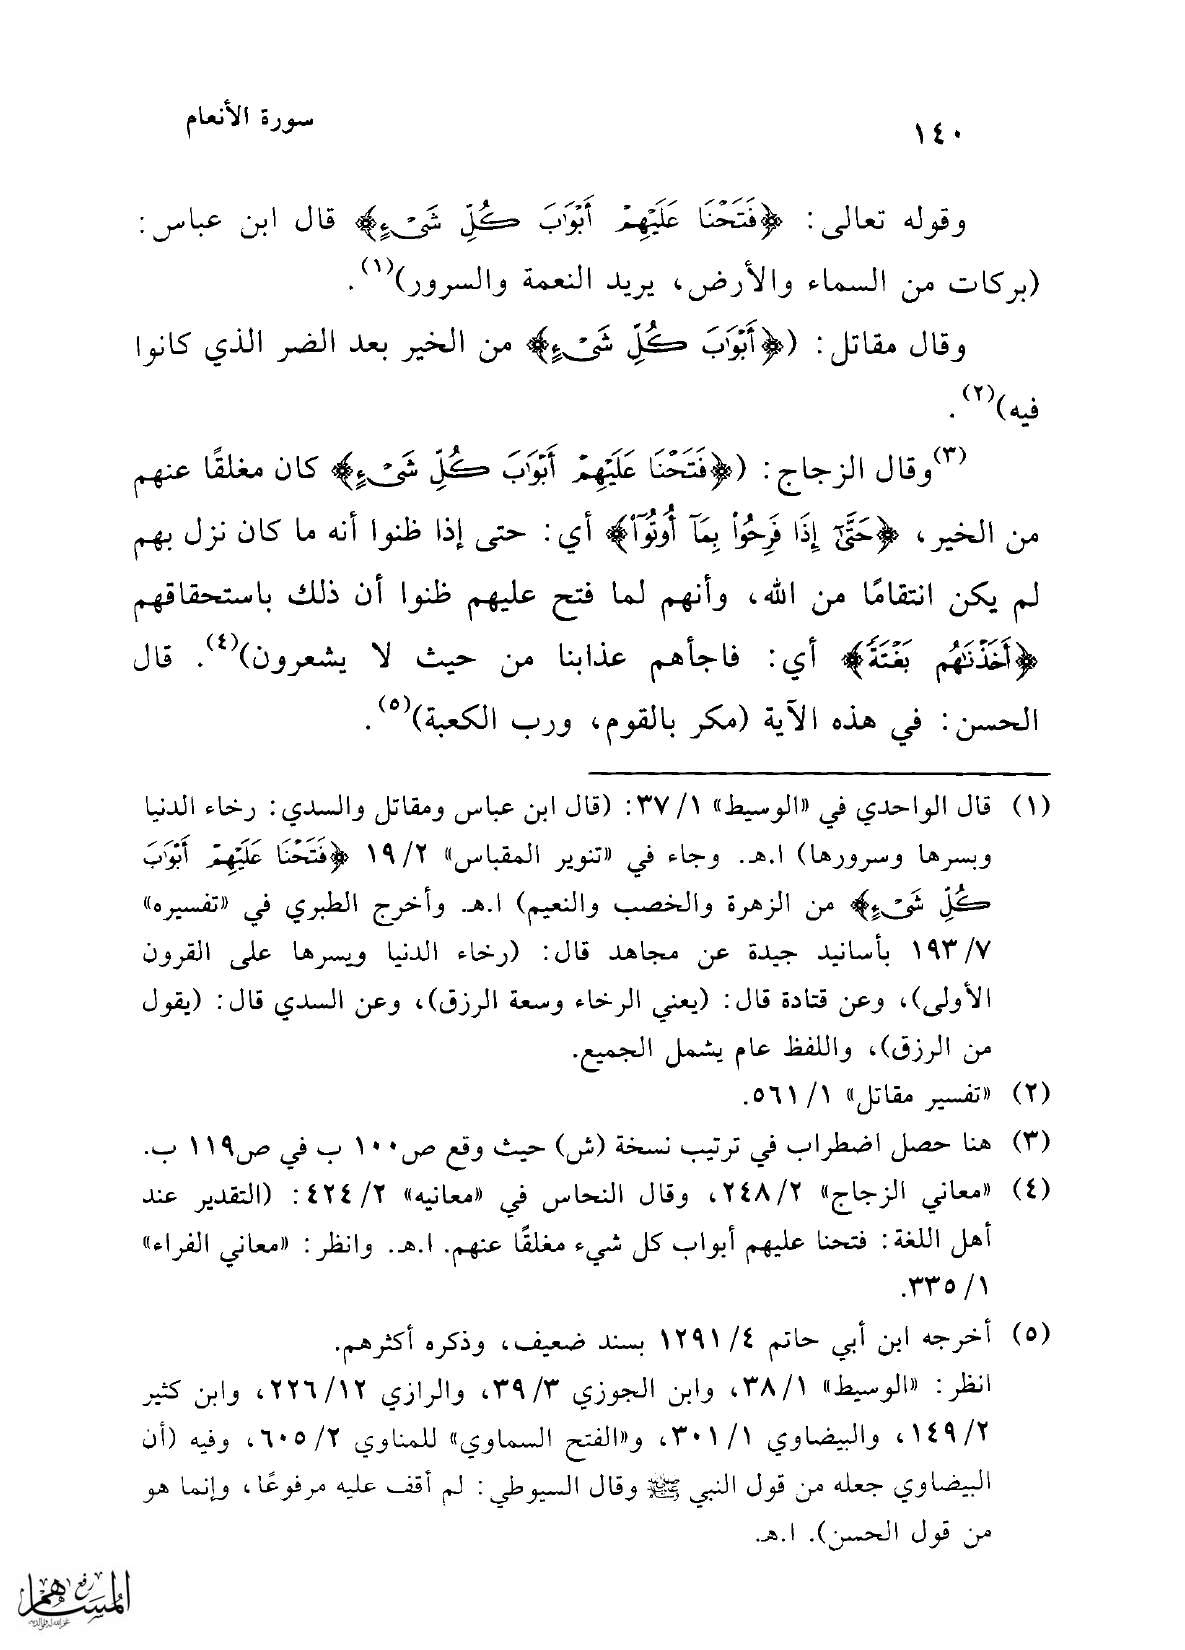 ١٤٠
سورة الأنعام
وقوله تعالى: ﴿فَتَحْنَا عَلَيْهِمْ أَبْوَابَ كُلِّ شَيْءٍ﴾ قال ابن عباس:
(بركات من السماء والأرض، يريد النعمة والسرور)(١).
وقال مقاتل: (﴿أَبْوَابَ كُلِّ شَيْءٍ﴾ من الخير بعد الضر الذي كانوا
فيه)(٢).
(٣)وقال الزجاج: (﴿فَتَحْنَا عَلَيْهِمْ أَبْوَابَ كُلِّ شَيْءٍ﴾ كان مغلقًا عنهم
من الخير، ﴿حَتَّىٰ إِذَا فَرِحُوا بِمَا أُوتُوا﴾ أي: حتى إذا ظنوا أنه ما كان نزل بهم
لم يكن انتقامًا من الله، وأنهم لما فتح عليهم ظنوا أن ذلك باستحقاقهم
﴿أَخَذْنَاهُم بَغْتَةً﴾ أي: فاجأهم عذابنا من حيث لا يشعرون)(٤). قال
الحسن: في هذه الآية (مكر بالقوم، ورب الكعبة)(٥).
(١) قال الواحدي في «الوسيط» ١/ ٣٧: (قال ابن عباس ومقاتل والسدي: رخاء الدنيا
ويسرها وسرورها) ا.هـ. وجاء في «تنوير المقباس» ٢/ ١٩ ﴿فَتَحْنَا عَلَيْهِمْ أَبْوَابَ
كُلِّ شَيْءٍ﴾ من الزهرة والخصب والنعيم) ا.هـ. وأخرج الطبري في «تفسيره»
٧/ ١٩٣ بأسانيد جيدة عن مجاهد قال: (رخاء الدنيا ويسرها على القرون
الأولى)، وعن قتادة قال: (يعني الرخاء وسعة الرزق)، وعن السدي قال: (يقول
من الرزق)، واللفظ عام يشمل الجميع.
(٢) «تفسير مقاتل» ١/ ٥٦١.
(٣) هنا حصل اضطراب في ترتيب نسخة (ش) حيث وقع ص١٠٠ ب في ص١١٩ ب.
(٤) «معاني الزجاج» ٢/ ٢٤٨، وقال النحاس في «معانيه» ٢/ ٤٢٤: (التقدير عند
أهل اللغة: فتحنا عليهم أبواب كل شيء مغلقًا عنهم. ا.هـ. وانظر: «معاني الفراء»
١/ ٣٣٥.
(٥) أخرجه ابن أبي حاتم ٤/ ١٢٩١ بسند ضعيف، وذكره أكثرهم.
انظر: «الوسيط» ١/ ٣٨، وابن الجوزي ٣/ ٣٩، والرازي ١٢/ ٢٢٦، وابن كثير
٢/ ١٤٩، والبيضاوي ١/ ٣٠١، و«الفتح السماوي» للمناوي ٢/ ٦٠٥، وفيه (أن
البيضاوي جعله من قول النبي ﷺ وقال السيوطي: لم أقف عليه مرفوعًا، وإنما هو
من قول الحسن). ا.هـ.
رفع
المساهم